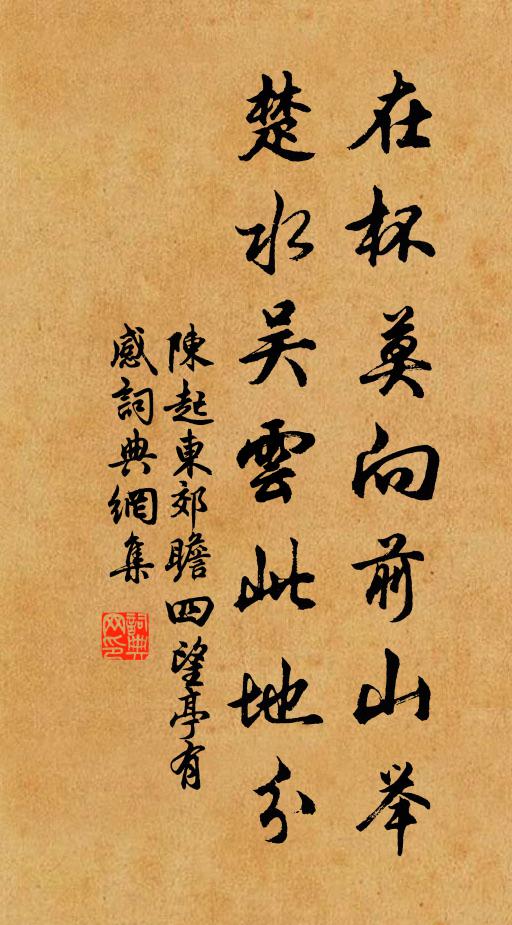 在杯莫向前山举
楚水吴雲此地分
陳起東郊瞻四望亭有
感詞典網集
詞典网印